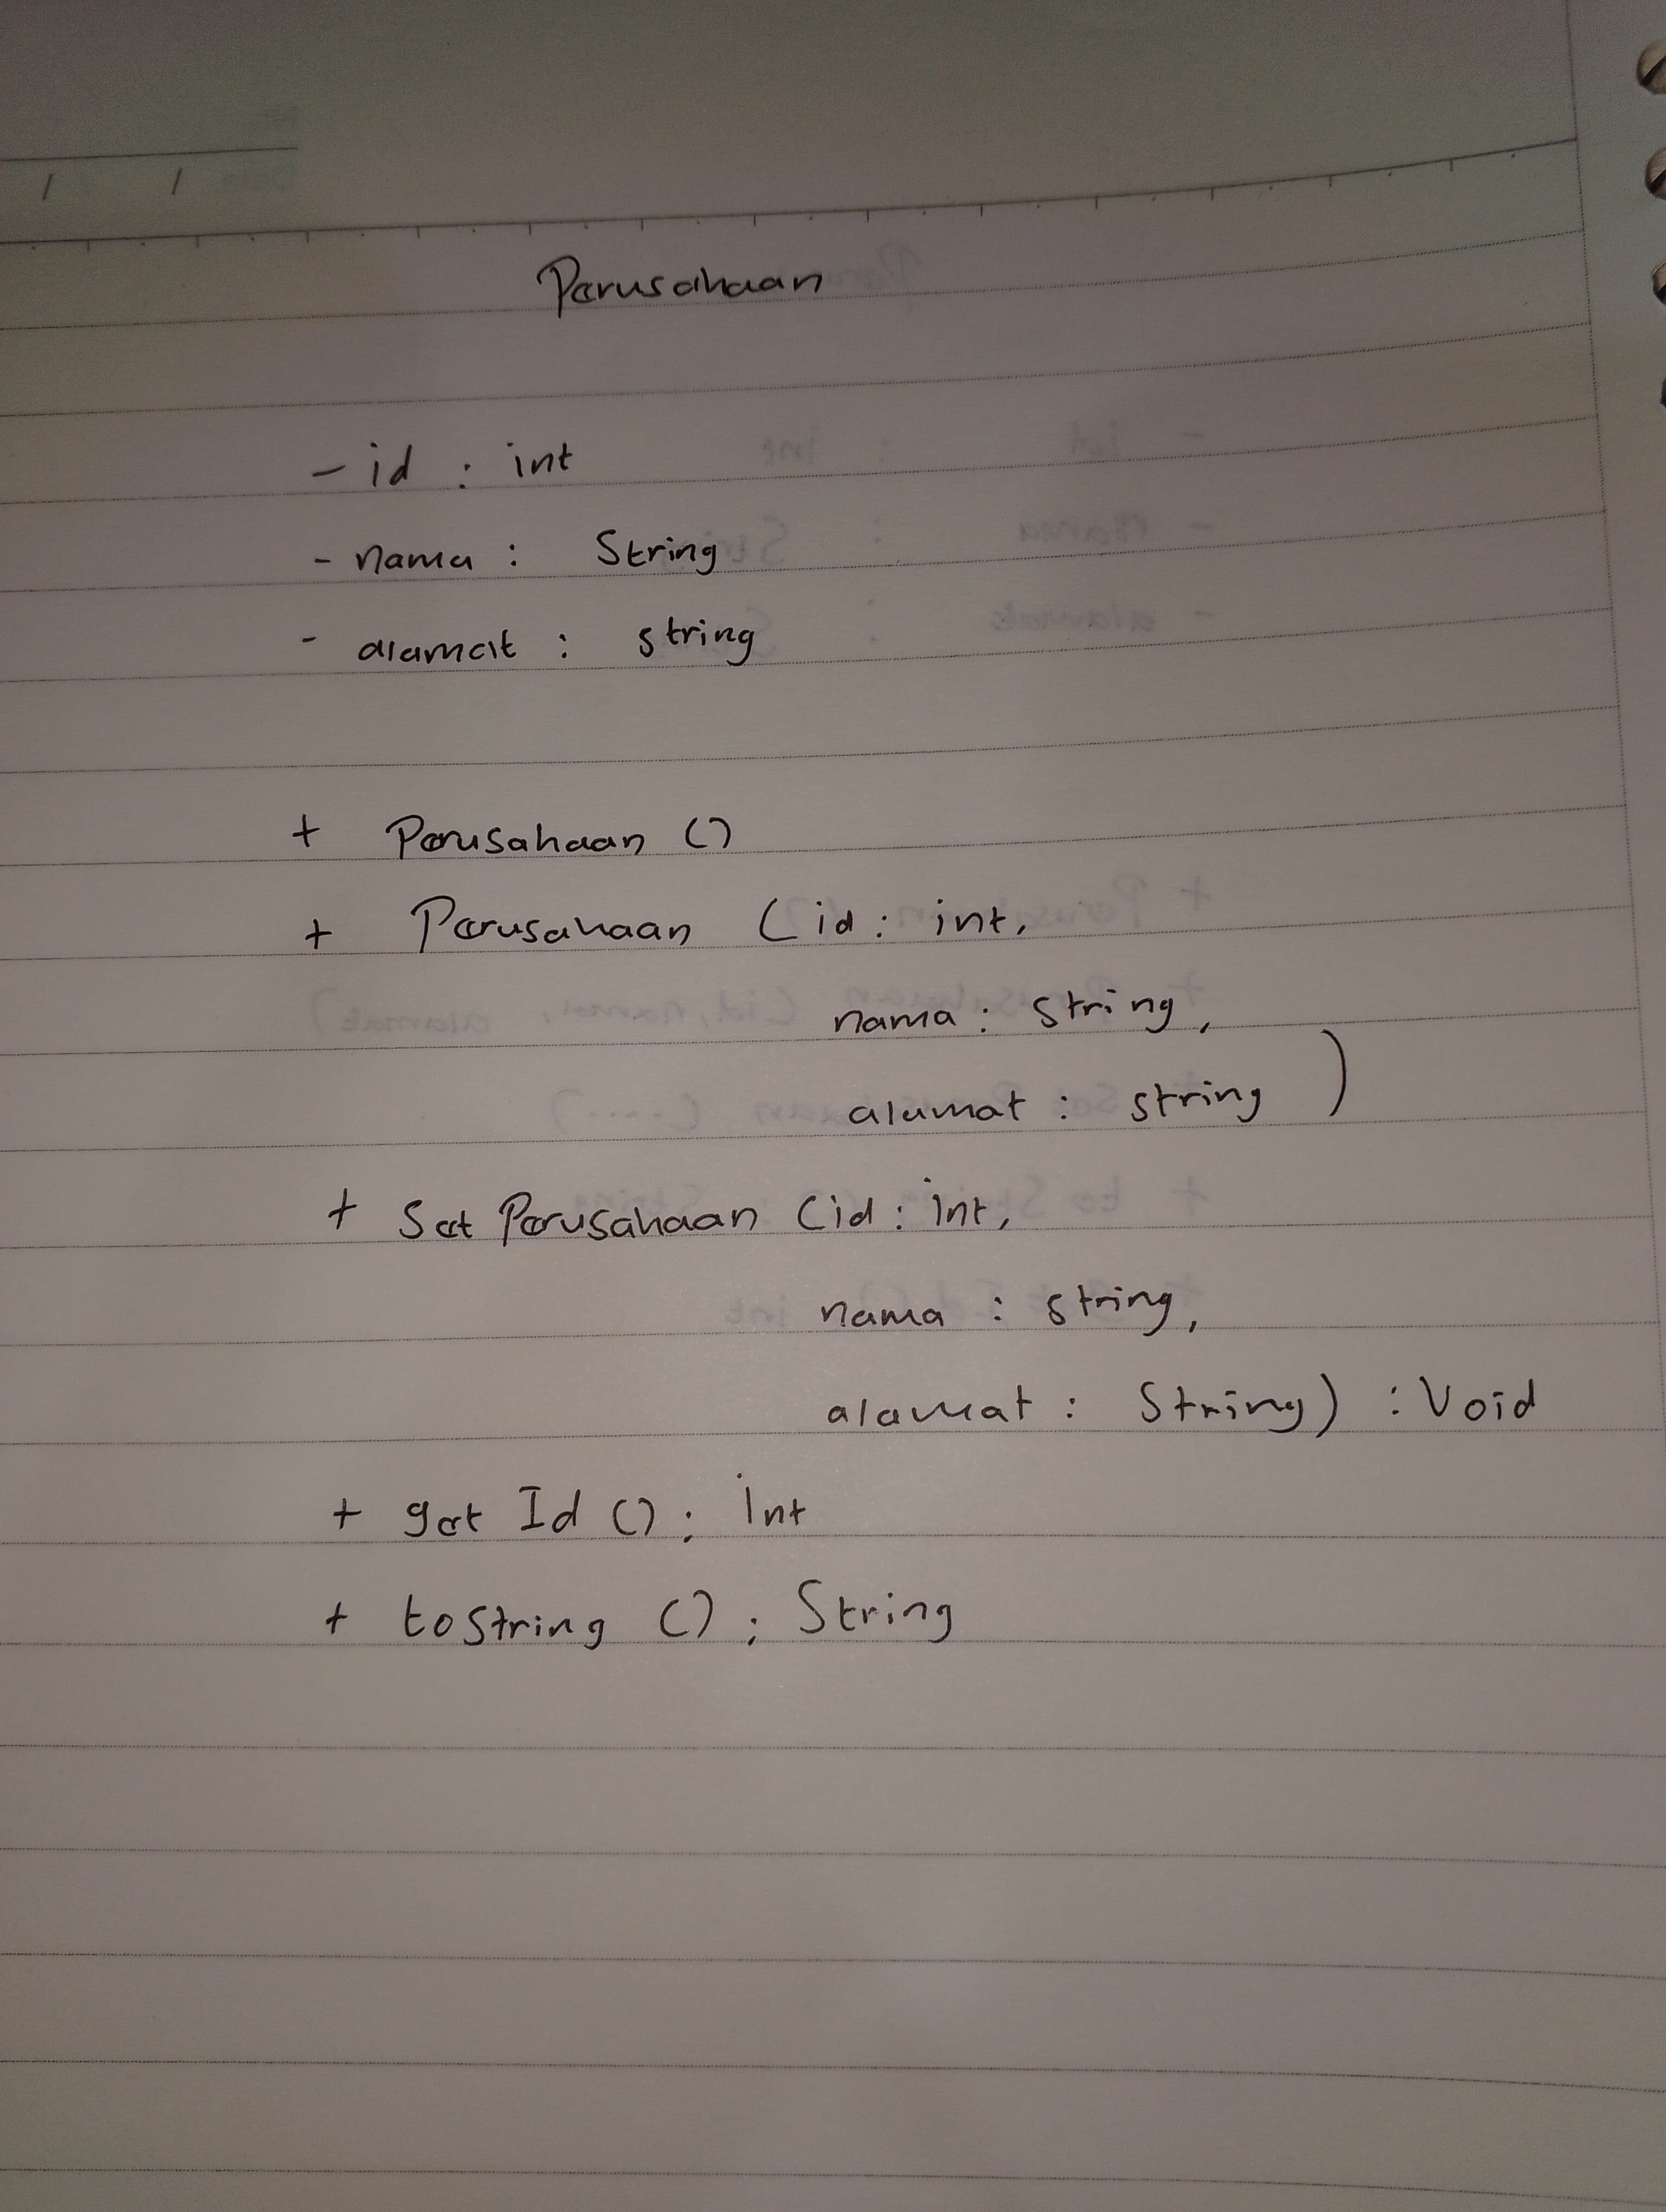 Perusahaan
- id : int
- nama : String
- alamat : string
+ Perusahaan ()
+ Perusahaan (id : int,
nama : string,
alamat : string )
+ Set Perusahaan (id : int,
nama : string,
alamat : String) : Void
+ get Id () : Int
+ toString () : String